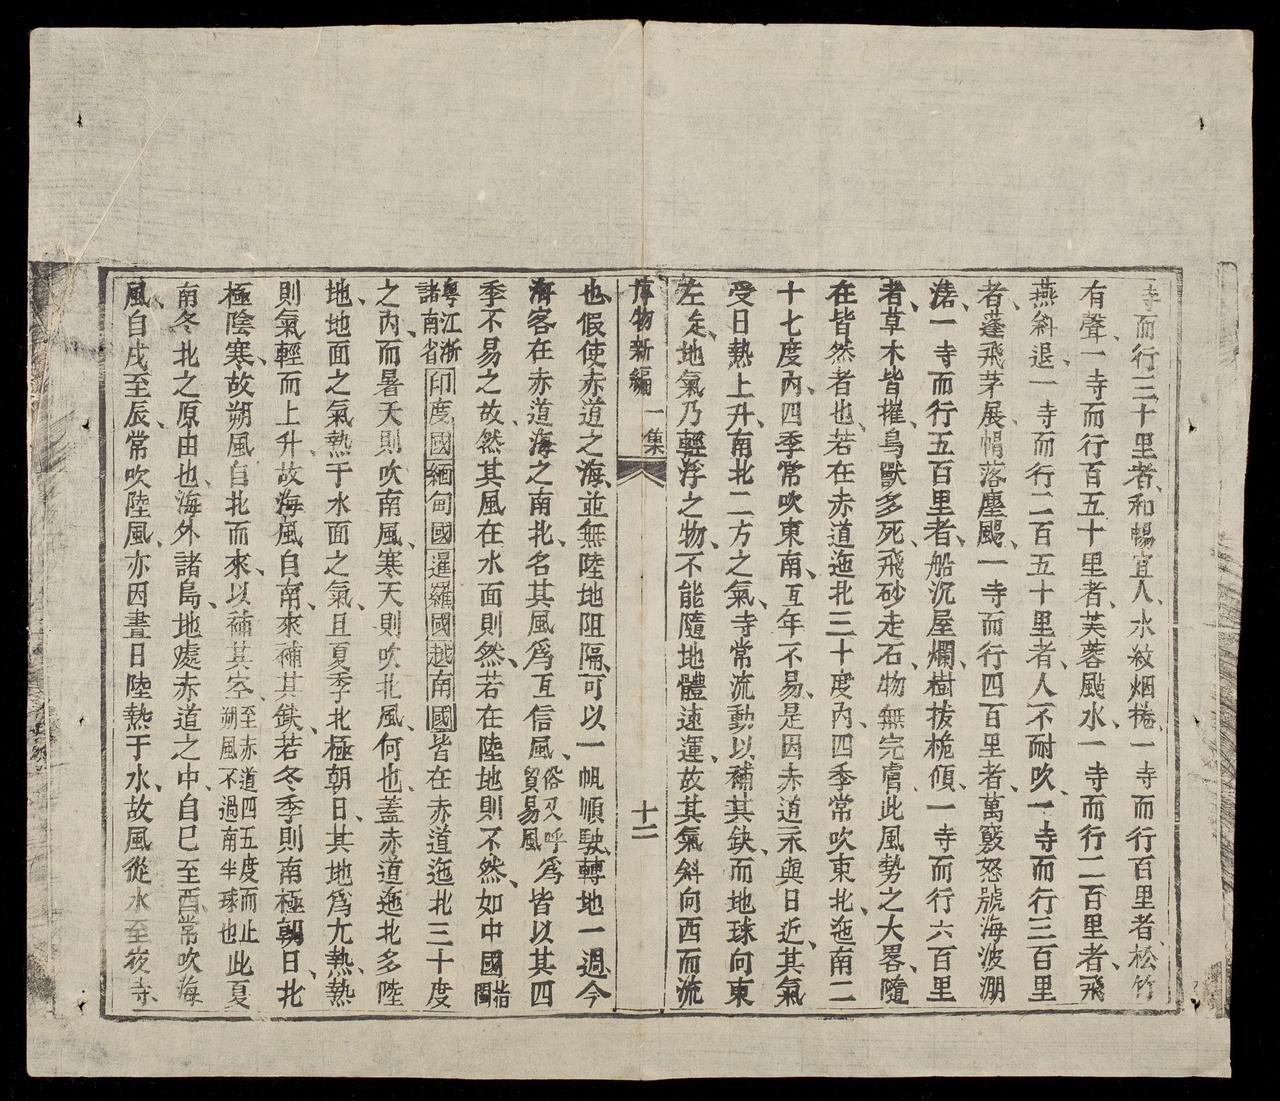 寺而行三十里者、和暢宜人、水紋烟捲、一寺而行百里者、松竹
有聲、一寺而行百五十里者、芙蓉颭水、一寺而行二百里者、飛
燕斜退、一寺而行二百五十里者、人不耐吹、一寺而行三百里
者、蓬飛茅展、帽落塵颺、一寺而行四百里者、萬竅怒號、海波溯
湱、一寺而行五百里者、船沉屋爛、樹拔桅傾、一寺而行六百里
者、草木皆摧、鳥獸多死、飛砂走石、物無完膚、此風勢之大畧、隨
在皆然者也、若在赤道迤北三十度內、四季常吹東北、迤南二
十七度內、四季常吹東南、亙年不易、是因赤道示與日近、其氣
受日熱上升、南北二方之氣、寺常流動以補其缺、而地球向東
左走、地氣乃輕浮之物、不能隨地體速運、故其氣斜向西而流
博物新編 一集 十二
也、假使赤道之海、並無陸地阻隔、可以一帆順駛、轉地一週、今
海客在赤道海之南北、名其風爲亙信風、俗又呼爲貿易風 皆以其四
季不易之故、然其風在水面則然、若在陸地則不然、如中國 指閩
粵江浙諸南省 印度國 緬甸國 暹羅國 越南國 皆在赤道迤北三十度
之內、而暑天則吹南風、寒天則吹北風、何也、蓋赤道迤北多陸
地、地面之氣熱于水面之氣、且夏季北極朝日、其地爲尢熱、熱
則氣輕而上升、故海風自南來補其缺、若冬季則南極朝日、北
極陰寒、故朔風自北而來、以補其空、至赤道四五度而止朔風不過南半球也 此夏
南冬北之原由也、海外諸島、地處赤道之中、自巳至酉、常吹海
風、自戌至辰、常吹陸風、亦因晝日陸熱于水、故風從水至、夜寺